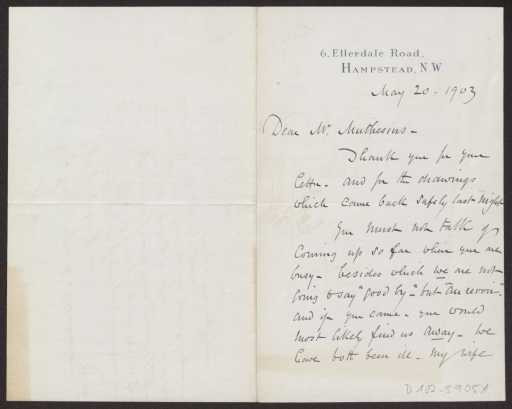 6, Ellerdale Road,
Hampstead, N.W.
May 20 - 1903
Dear Mr. Muthesius -
Thank you for your
letter - and for the drawings
which came back safely last night
You must not talk of
coming up so far when you are
busy - besides which we are not
going to say "good by" - but "Au revoir".
and if you came - you would
most likely find us away - We
have both been ill - My wife
D 102-5905A